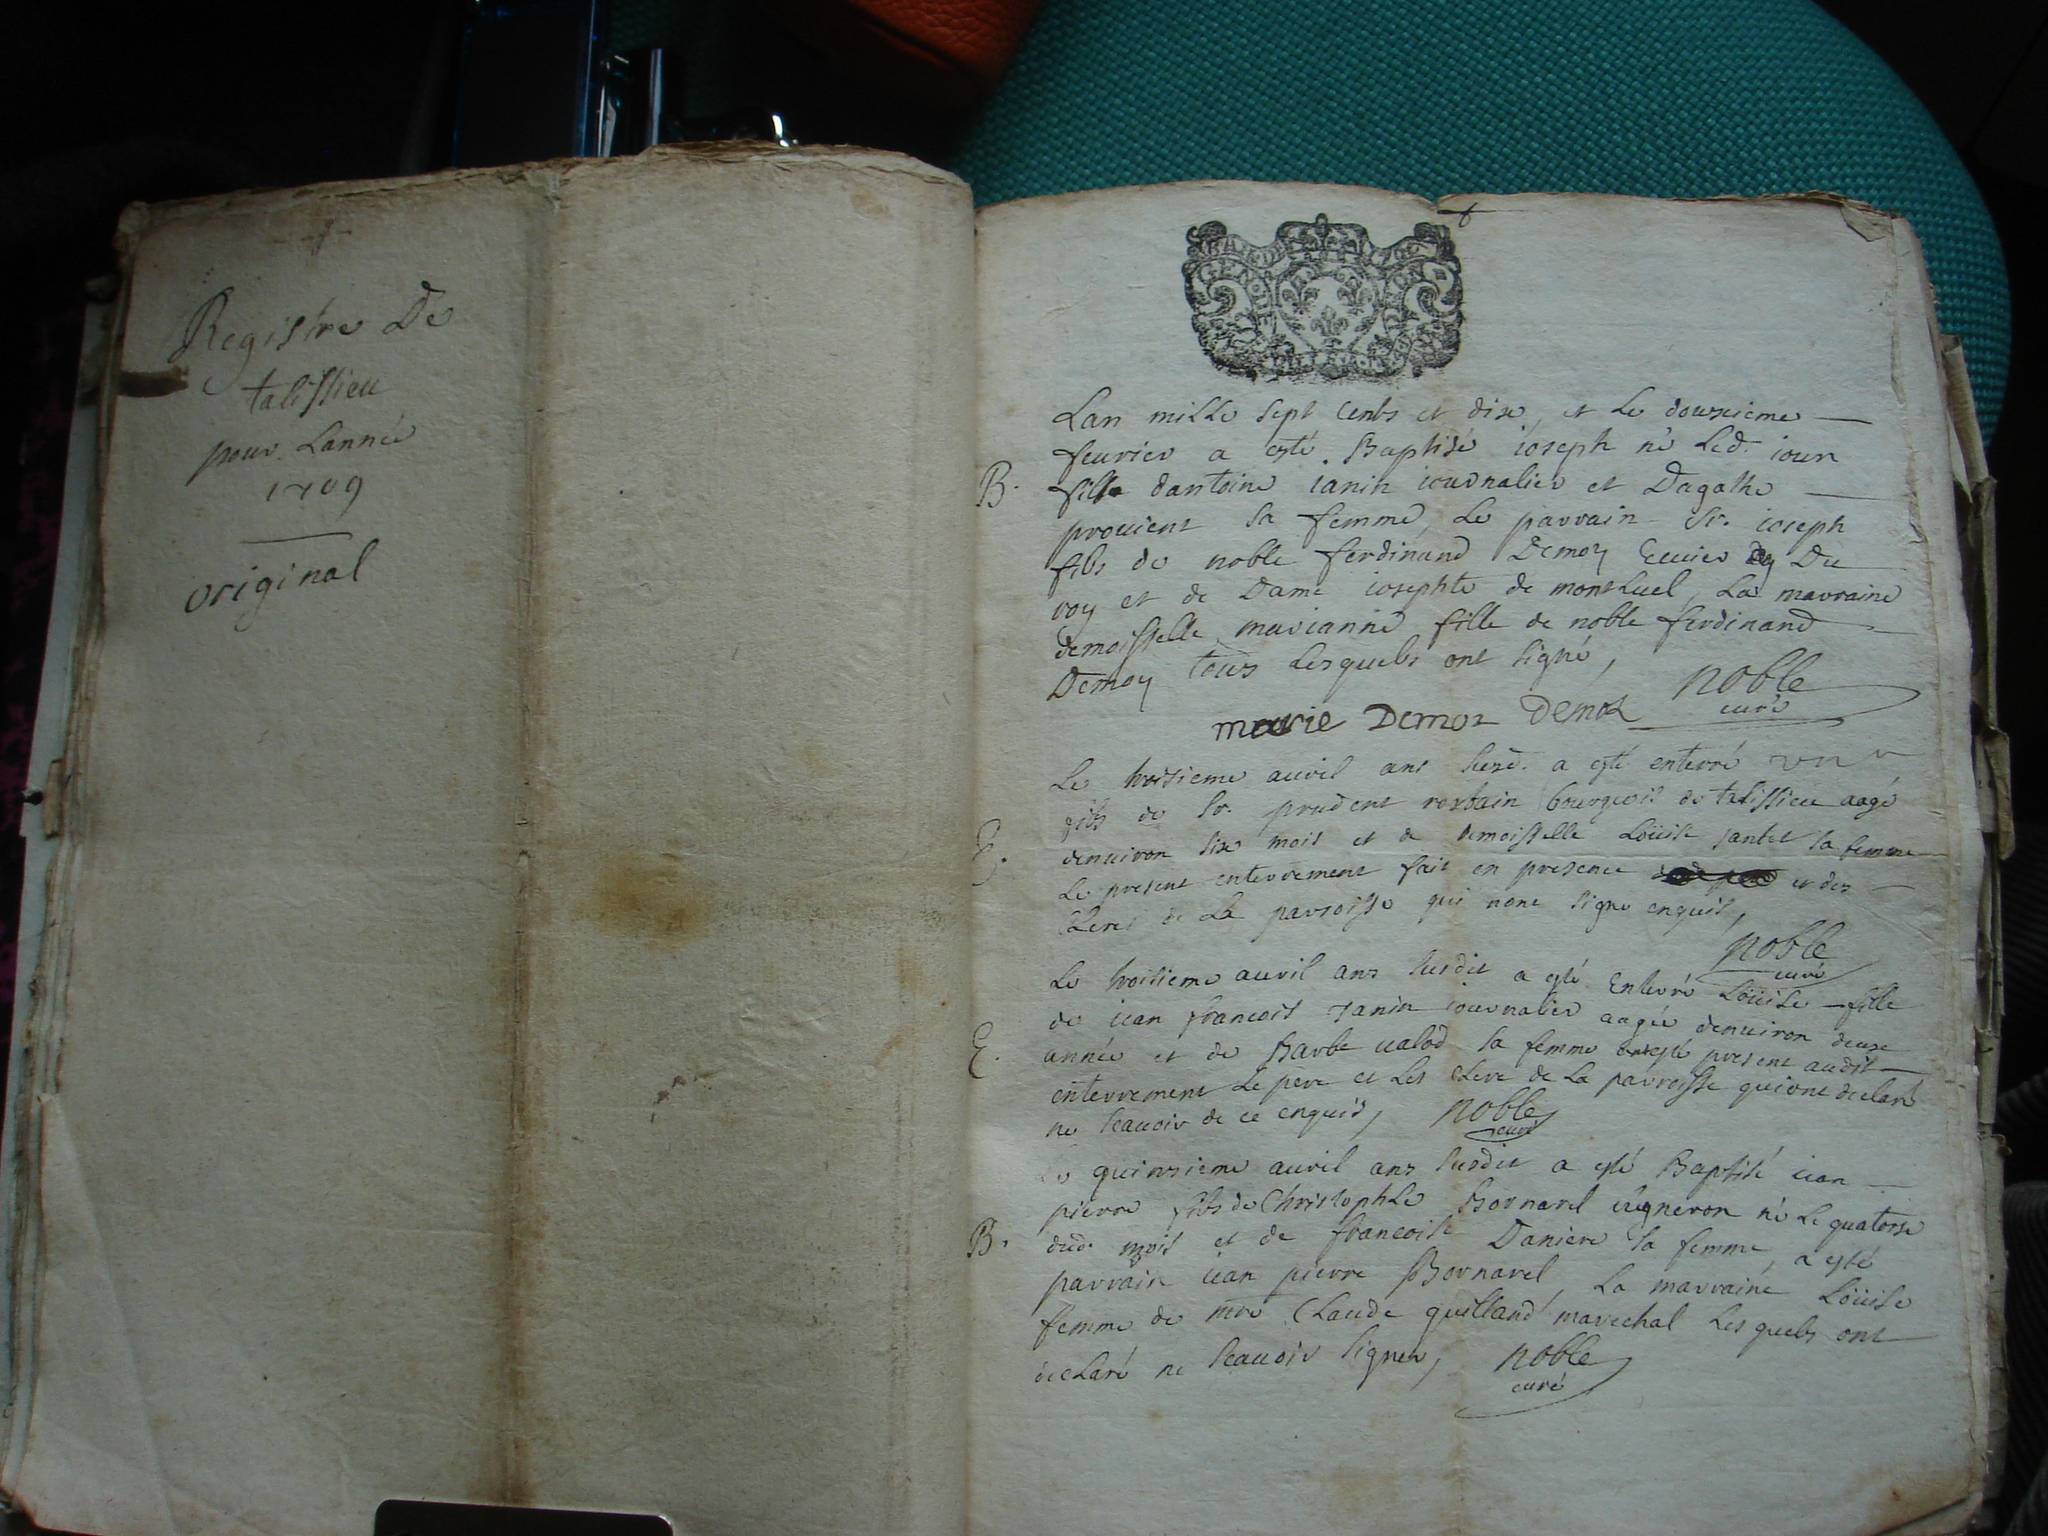 Registre De
talissieu
pour Lannée
1709
original
GEN
Lan mille sept cents et dix, et Le dousieme
feurier a esté Baptisé ioseph né Led. iour
B. fils dantoine ianin iournalier et Dagathe
prouient sa femme, Le parrain Sr. ioseph
fils de noble ferdinand Demoz Ecuier Du
roy et de Dame iosephte de montLuel, La marraine
demoisselle marianne fille de noble ferdinand
Demoz tous Lesquels ont signé,
noble
curé
marie Demoz Demoz
Le troisieme auril ans susd. a esté enterré un
fils de Sr. prudent rostain bourgeois de talissieu aagé
E. denuiron six mois et de demoisselle Loüise jantet sa femme
Le present enterrement fait en presence et des
Clercs de La parroisse qui nont signé enquis,
noble
curé
Le troisieme auril ans susdit a esté Enterré Loüise fille
de iean francois Janin iournalier aagée denuiron deux
E. année et de Barbe ualod sa femme ont esté present audit
enterrement Le pere et Les Clerc de La parroisse qui ont declaré
ne scauoir de ce enquis, noble
curé
Le quinsieme auril ans susdit a esté Baptisé iean
pierre fils de ChristophLe Bornarel uigneron né Le quatorse
B. dud. mois et de francoise Daniere sa femme, a esté
parrain iean pierre Bornarel, La marraine Loüise
femme de mre Claude quilland marechal Les quels ont
declaré ne scauoir signer, noble
curé